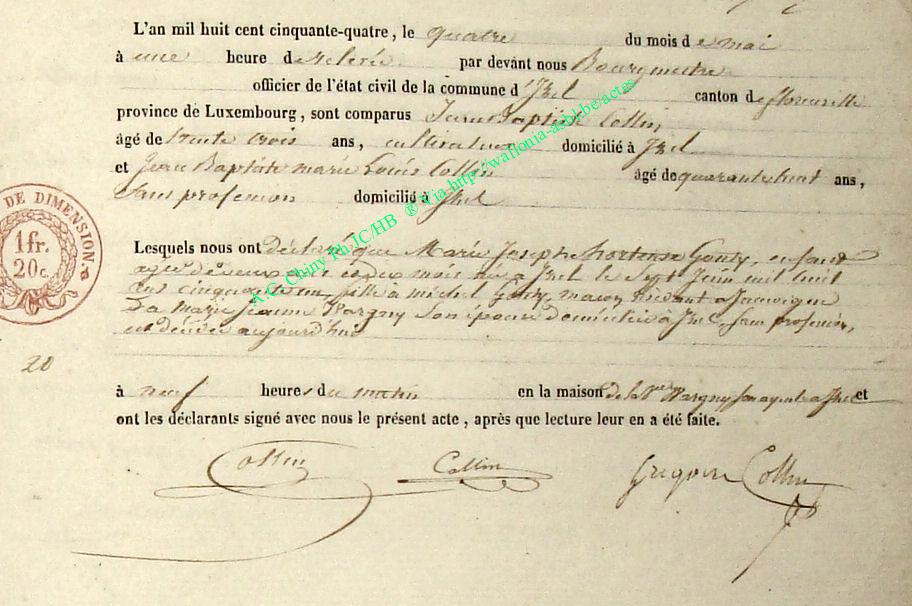 L'an mil huit cent cinquante-quatre, le quatre du mois d e mai
à une heure d e relevée par devant nous Bourgmestre
officier de l'état civil de la commune d'Izel canton de florenville
province de Luxembourg, sont comparus Jean Baptiste Collin,
âgé de trente trois ans, cultivateur domicilié à Izel
et Jean Baptiste marie Louis Collin âgé de quarante huit ans,
Sans profession domicilié à Izel
DE DIMENSION
1 fr.
20 c.
Lesquels nous ont déclaré que Marie Joseph hortense Gonry, enfant
agée de deux ans et dix mois née a Izel le Sept Juin mil huit
cent cinquante un, fille à michel Gonry, maçon vivant a Jamoigne
Et a Marie jeanne Wargny Son épouse domiciliée à Izel, sans profession,
est décédée aujourd'hui
20
à neuf heures du matin en la maison de la Wargny Izel et
ont les déclarants signé avec nous le présent acte, après que lecture leur en a été faite.
Collin Collin Gregoire Collin
A.G. Chiny Ph.JC/HB ® Via-http://wallonia-asbl.be/actes